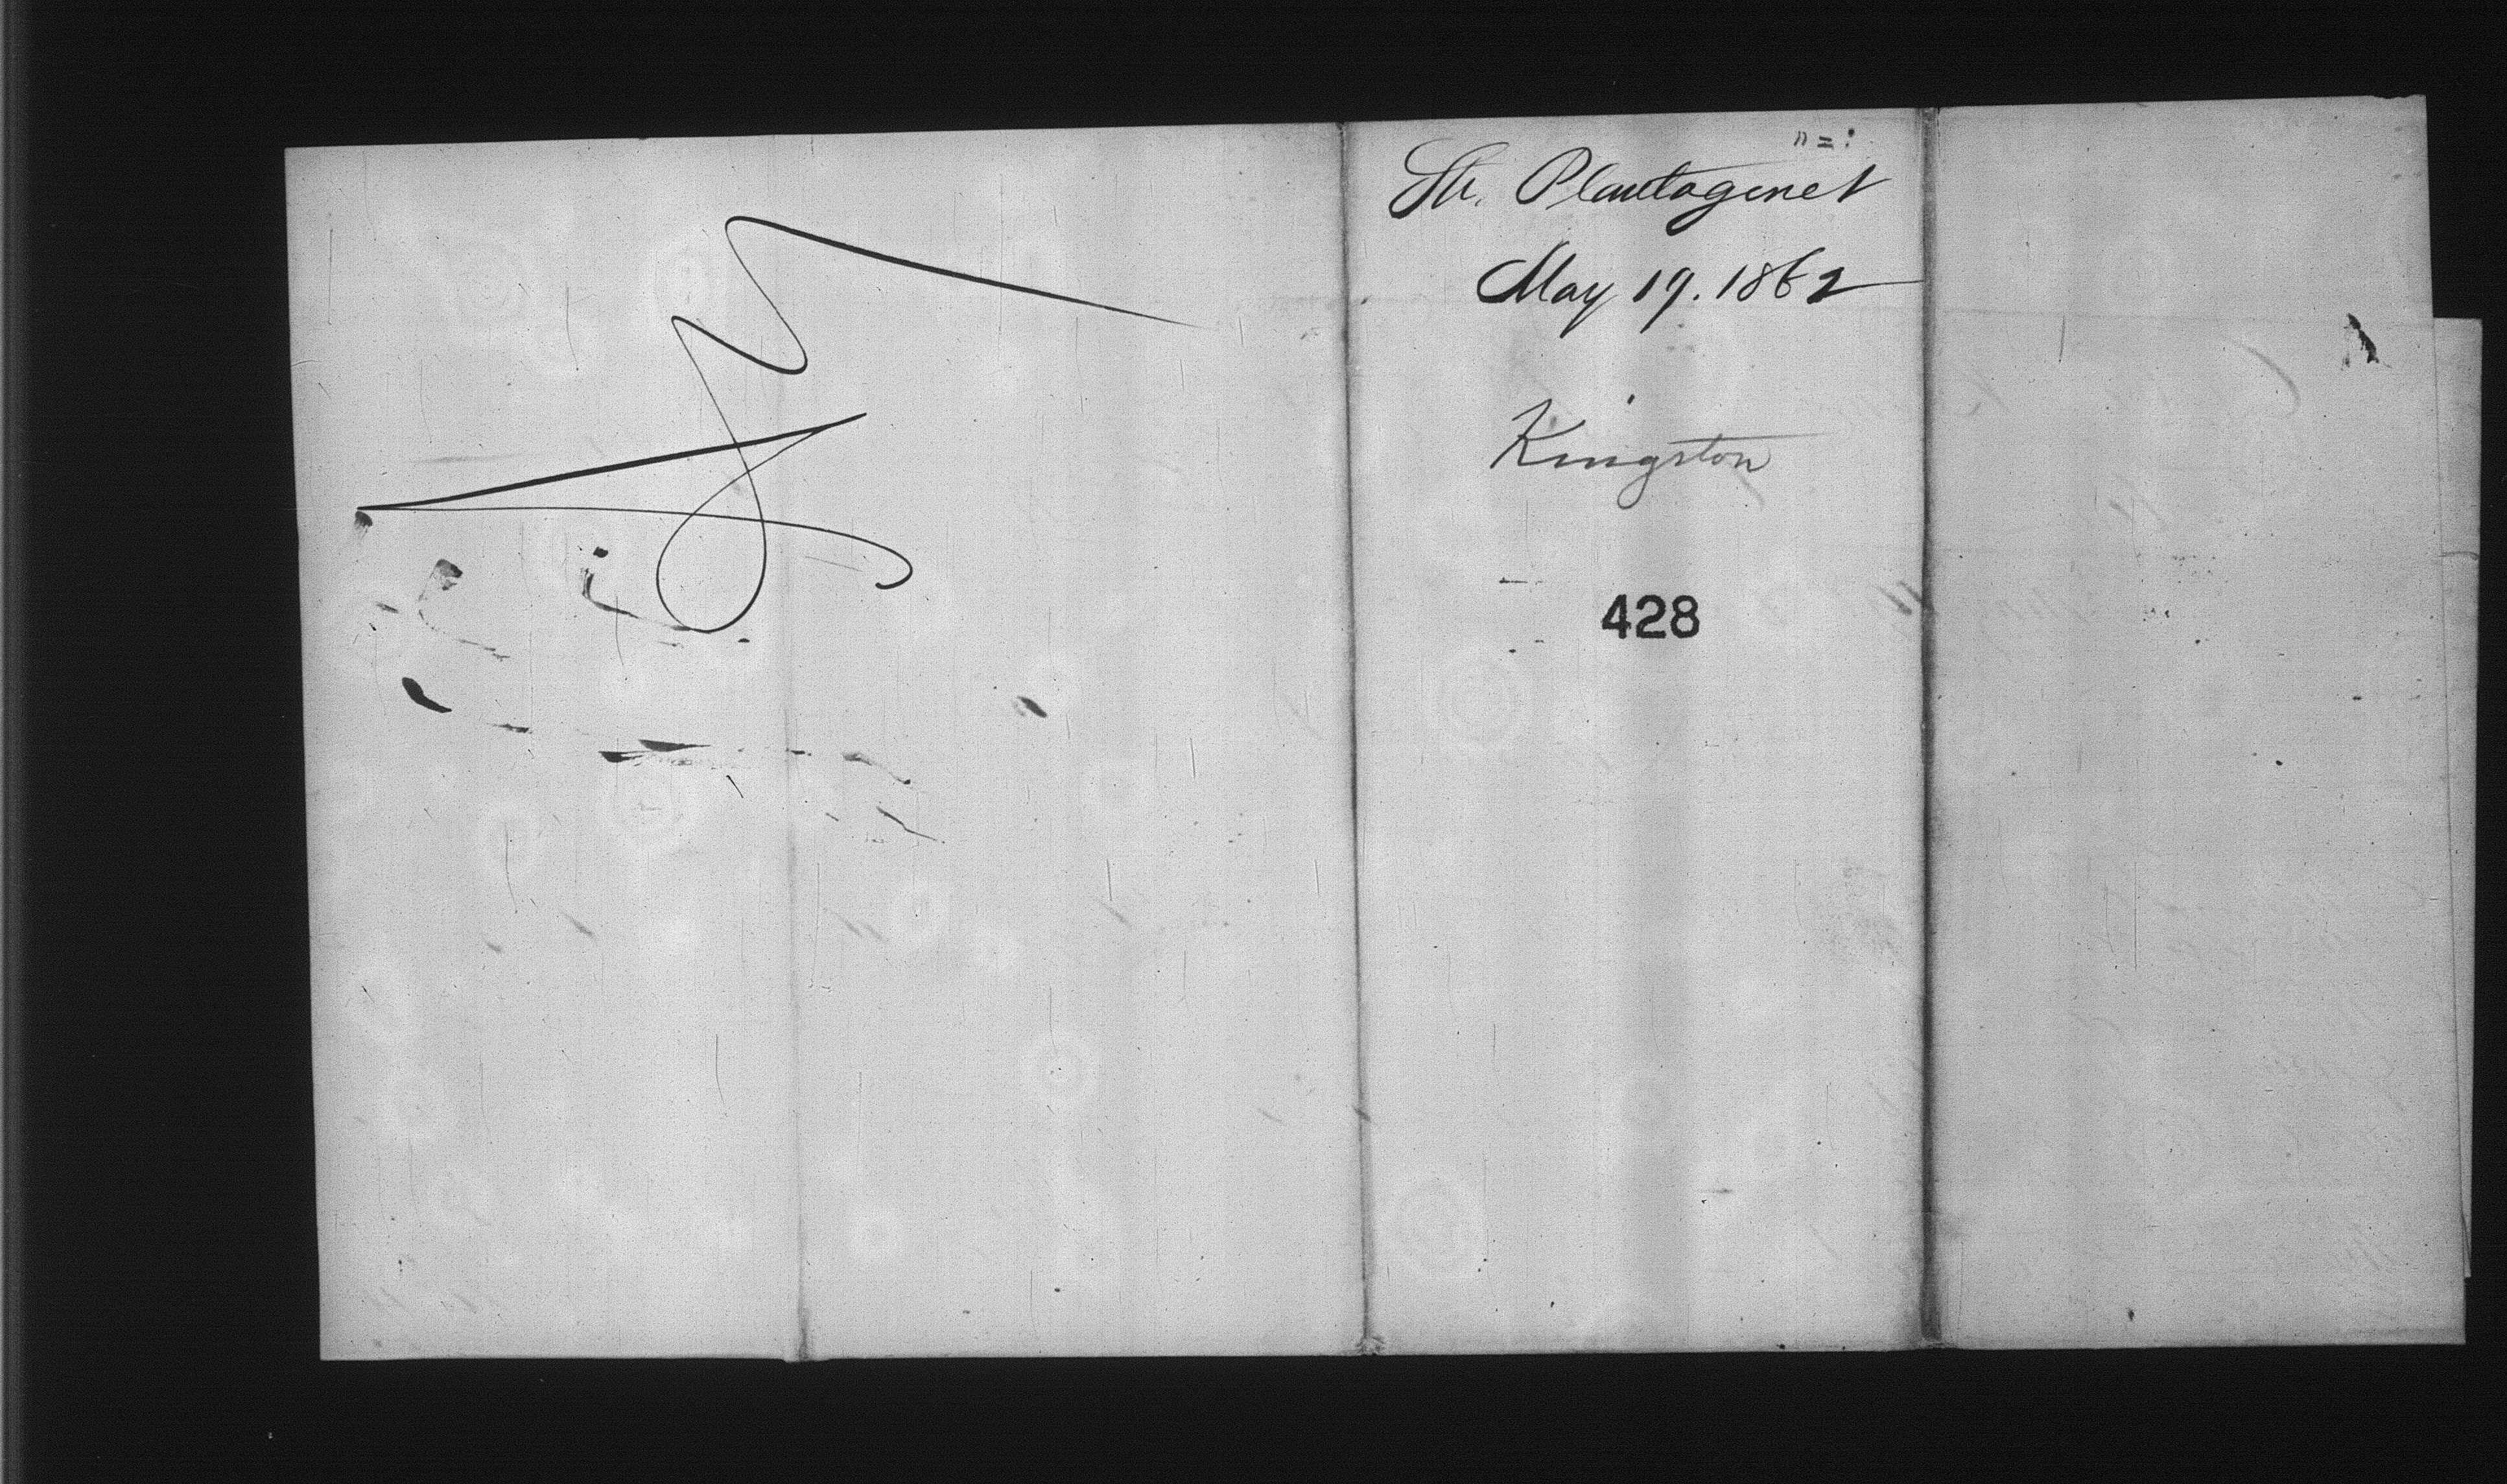 " = :
Str. Plantagenet
May 19. 1862
Kingston
428